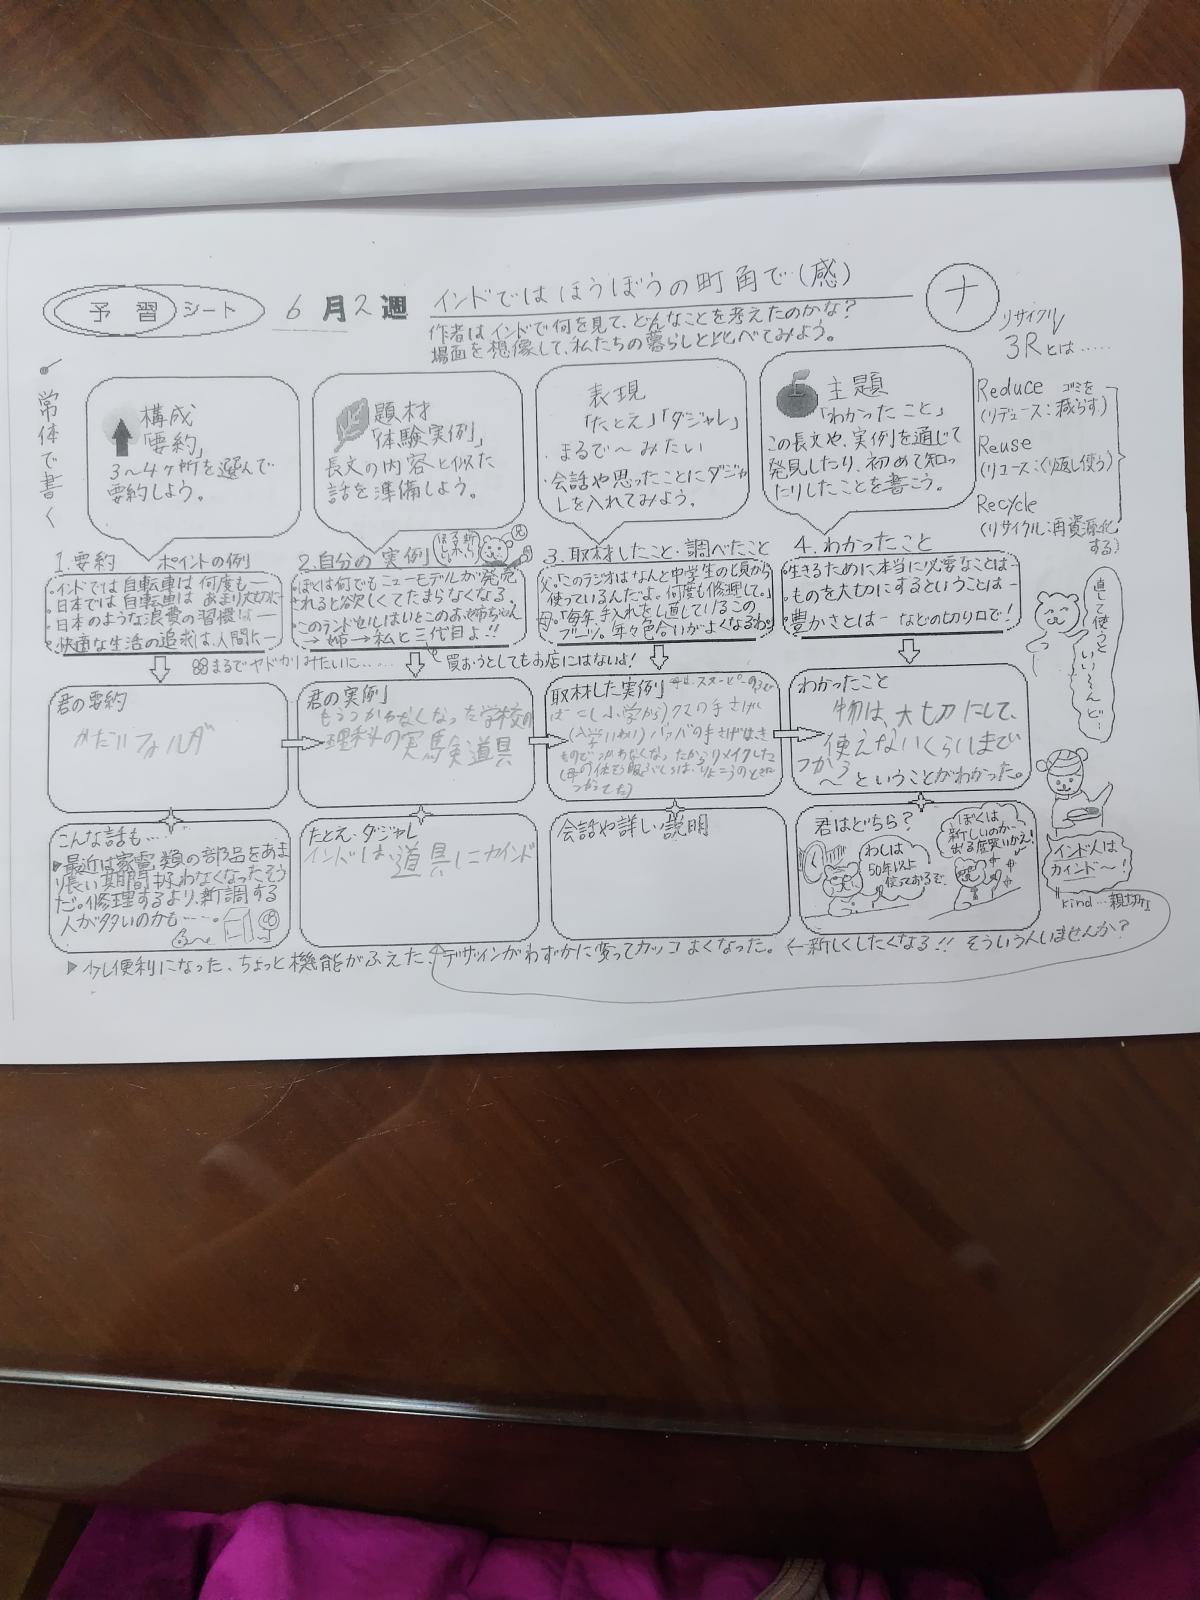 予習シート 6月2週 インドではほうぼうの町角で(感) ナ
作者はインドで何を見て、どんなことを考えたのかな？
場面を想像して、私たちの暮らしと比べてみよう。
常体で書く
構成
「要約」
3〜4ヶ所を選んで
要約しよう。
題材
「体験実例」
長文の内容と似た
話を準備しよう。
表現
「たとえ」「ダジャレ」
・まるで〜みたい
・会話や思ったことにダジャ
レを入れてみよう。
主題
「わかったこと」
この長文や、実例を通じて
発見したり、初めて知っ
たりしたことを書こう。
リサイクル
3Rとは……
Reduce ゴミを
(リデュース：減らす)
Reuse
(リユース：くり返し使う)
Recycle
(リサイクル：再資源化
する)
1.要約 ポイントの例
・インドでは自転車は何度も―
・日本では自転車はあまり大切に
・日本のような浪費の習慣は―
・快適な生活の追求は、人間に―
2.自分の実例
・ぼくは何でもニューモデルが発売
されると欲しくてたまらなくなる。
・このランドセルはいとこのお姉ちゃん
→姉→私と三代目よ！！
買おうとしてもお店にはないよ！
まるでヤドカリみたいに……
3.取材したこと・調べたこと
父.「このラジオはなんと中学生の頃から
使っているんだよ。何度も修理して。」
母.「毎年、手入れをし直しているこの
ブーツ。年々色合いがよくなるわ。」
4.わかったこと
・生きるために本当に必要なことは―
・ものを大切にするということは―
・豊かさとは― などの切り口で！
直して使うと
いいもんど…
君の要約
かだいフォルダ
君の実例
もうつかわなくなった学校の
理科の実験道具
取材した実例
わかったこと
物は、大切にして、
使えないくらいまで
つかう
〜ということがわかった。
こんな話も……
▶最近は家電類の部品をあま
り長い期間持わなくなったそう
だ。修理するより、新調する
人が多いのかも……。
たとえ・ダジャレ
インドは、道具にカインド
会話や詳しい説明
君はどちら？
わしは
50年以上
使っておるで
ぼくは
新しいのが
出る度買いかえ！
インド人は
カインド〜！
kind…親切な
▶少し便利になった、ちょっと機能がふえた、デザインがわずかに変ってカッコよくなった。←新しくしたくなる！！そういう人いませんか？